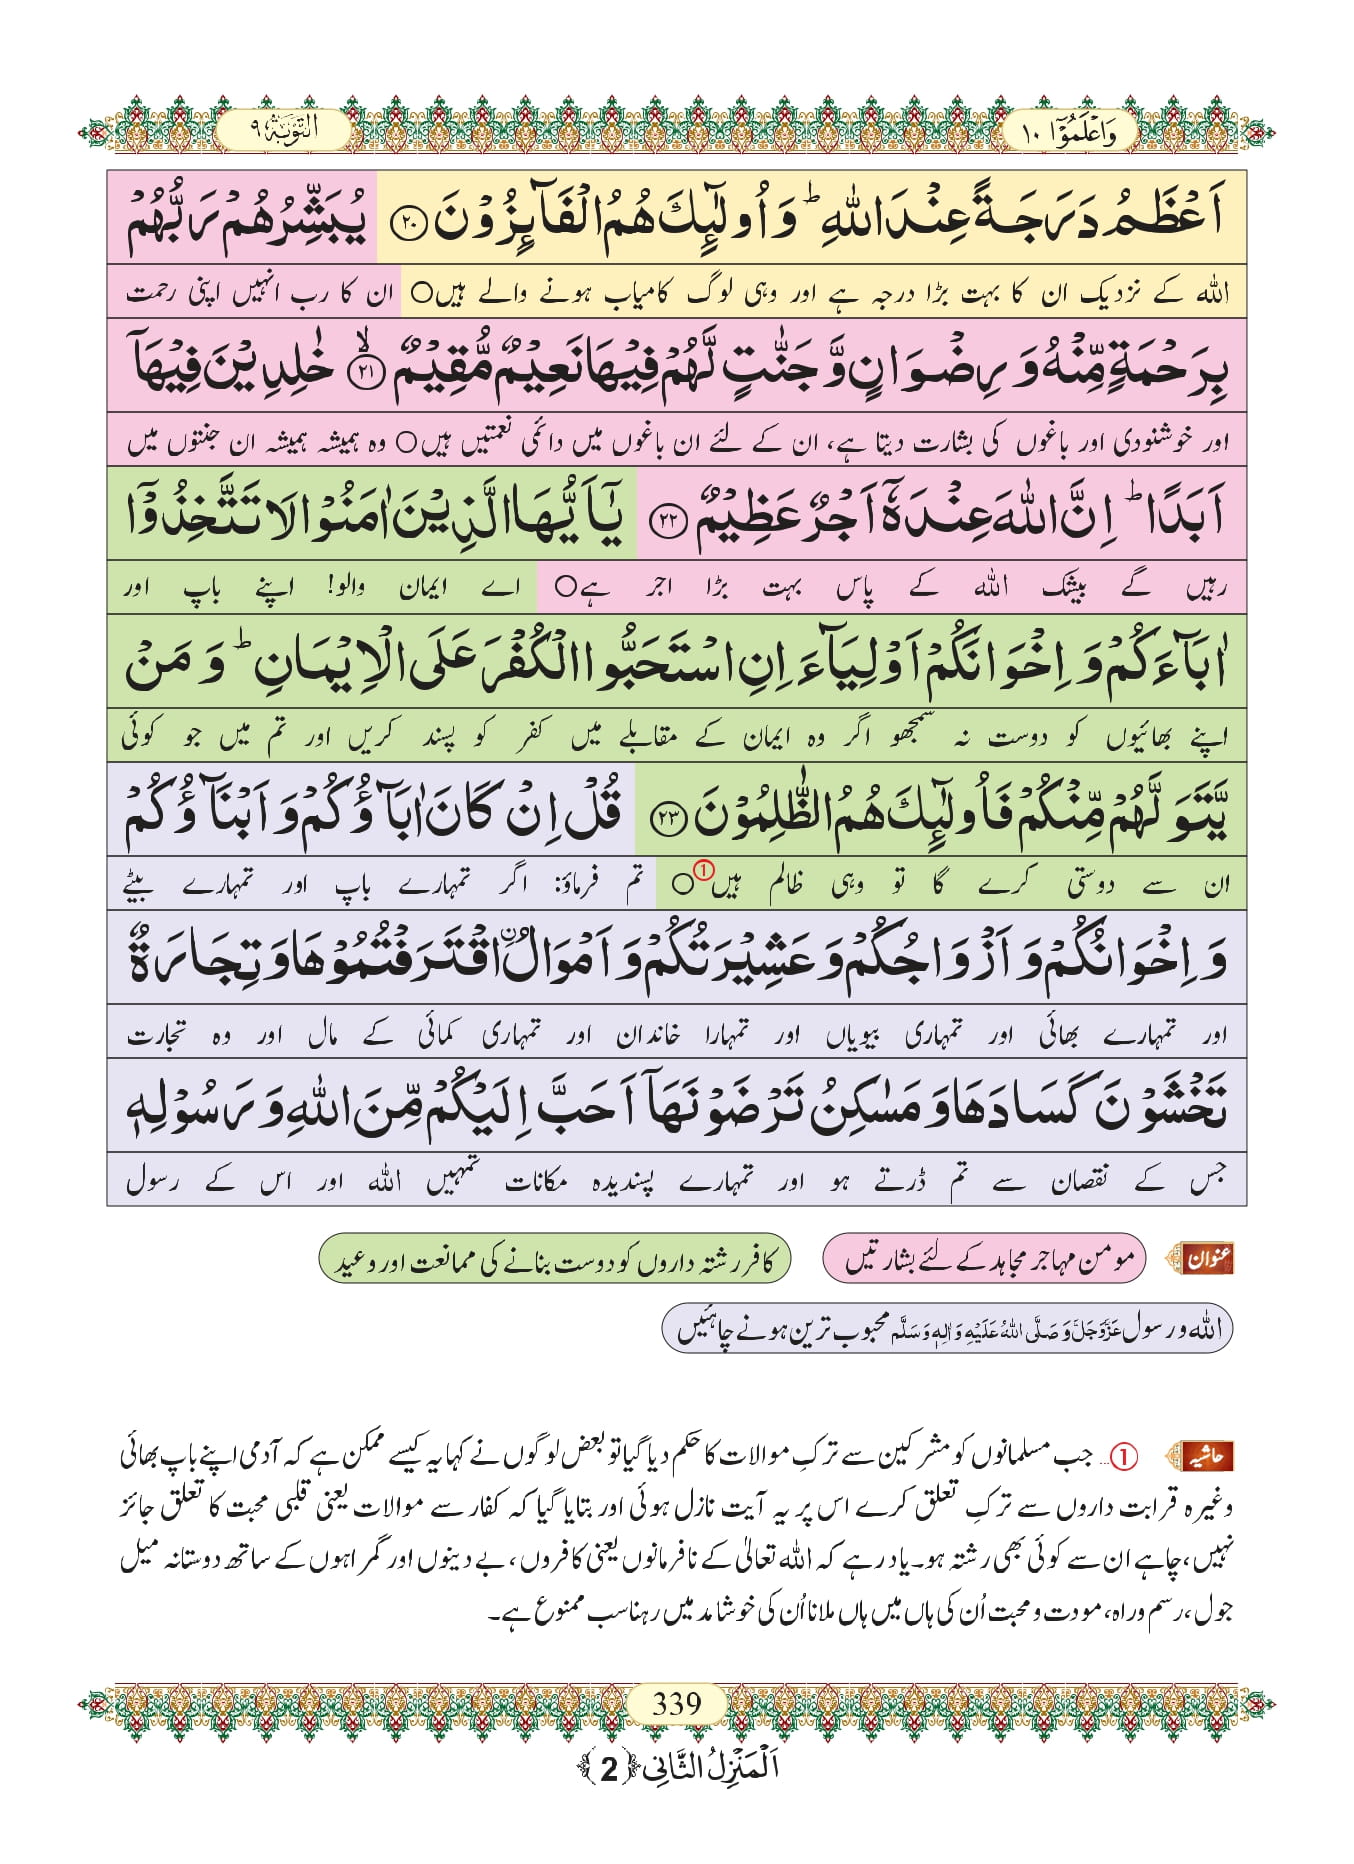 وَاعْلَمُوْۤا ۱۰
التَّوْبَة ۹
اَعْظَمُ دَرَجَةً عِنْدَ اللّٰهِؕ وَ اُولٰٓىٕكَ هُمُ الْفَآىٕزُوْنَ ﴿۲۰﴾ یُبَشِّرُهُمْ رَبُّهُمْ
اللہ کے نزدیک ان کا بہت بڑا درجہ ہے اور وہی لوگ کامیاب ہونے والے ہیں○ ان کا رب انہیں اپنی رحمت
بِرَحْمَةٍ مِّنْهُ وَ رِضْوَانٍ وَّ جَنّٰتٍ لَّهُمْ فِیْهَا نَعِیْمٌ مُّقِیْمٌۙ ﴿۲۱﴾ خٰلِدِیْنَ فِیْهَاۤ
اور خوشنودی اور باغوں کی بشارت دیتا ہے، ان کے لئے ان باغوں میں دائمی نعمتیں ہیں○ وہ ہمیشہ ہمیشہ ان جنتوں میں
اَبَدًاؕ اِنَّ اللّٰهَ عِنْدَهٗۤ اَجْرٌ عَظِیْمٌ ﴿۲۲﴾ یٰۤاَیُّهَا الَّذِیْنَ اٰمَنُوْا لَا تَتَّخِذُوْۤا
رہیں گے بیشک اللہ کے پاس بہت بڑا اجر ہے○ اے ایمان والو! اپنے باپ اور
اٰبَآءَكُمْ وَ اِخْوَانَكُمْ اَوْلِیَآءَ اِنِ اسْتَحَبُّوا الْكُفْرَ عَلَى الْاِیْمَانِؕ وَ مَنْ
اپنے بھائیوں کو دوست نہ سمجھو اگر وہ ایمان کے مقابلے میں کفر کو پسند کریں اور تم میں جو کوئی
یَّتَوَلَّهُمْ مِّنْكُمْ فَاُولٰٓىٕكَ هُمُ الظّٰلِمُوْنَ ﴿۲۳﴾ قُلْ اِنْ كَانَ اٰبَآؤُكُمْ وَ اَبْنَآؤُكُمْ
ان سے دوستی کرے گا تو وہی ظالم ہیں①○ تم فرماؤ: اگر تمہارے باپ اور تمہارے بیٹے
وَ اِخْوَانُكُمْ وَ اَزْوَاجُكُمْ وَ عَشِیْرَتُكُمْ وَ اَمْوَالُ ﰳاقْتَرَفْتُمُوْهَا وَ تِجَارَةٌ
اور تمہارے بھائی اور تمہاری بیویاں اور تمہارا خاندان اور تمہاری کمائی کے مال اور وہ تجارت
تَخْشَوْنَ كَسَادَهَا وَ مَسٰكِنُ تَرْضَوْنَهَاۤ اَحَبَّ اِلَیْكُمْ مِّنَ اللّٰهِ وَ رَسُوْلِهٖ
جس کے نقصان سے تم ڈرتے ہو اور تمہارے پسندیدہ مکانات تمہیں اللہ اور اس کے رسول
عنوان مومن مہاجر مجاہد کے لئے بشارتیں کافر رشتہ داروں کو دوست بنانے کی ممانعت اور وعید
اللہ ورسول عَزَّوَجَلَّ وَصَلَّى اللهُ عَلَيْهِ وَاٰلِهٖ وَسَلَّم محبوب ترین ہونے چاہئیں
حاشیہ ①... جب مسلمانوں کو مشرکین سے ترکِ موالات کا حکم دیا گیا تو بعض لوگوں نے کہا یہ کیسے ممکن ہے کہ آدمی اپنے باپ بھائی
وغیرہ قرابت داروں سے ترکِ تعلق کرے اس پر یہ آیت نازل ہوئی اور بتایا گیا کہ کفار سے موالات یعنی قلبی محبت کا تعلق جائز
نہیں، چاہے ان سے کوئی بھی رشتہ ہو۔ یاد رہے کہ اللہ تعالیٰ کے نافرمانوں یعنی کافروں، بے دینوں اور گمراہوں کے ساتھ دوستانہ میل
جول، رسم وراہ، مودت ومحبت اُن کی ہاں میں ہاں ملانا اُن کی خوشامد میں رہنا سب ممنوع ہے۔
339
اَلْمَنْزِلُ الثَّانِی ﴿2﴾